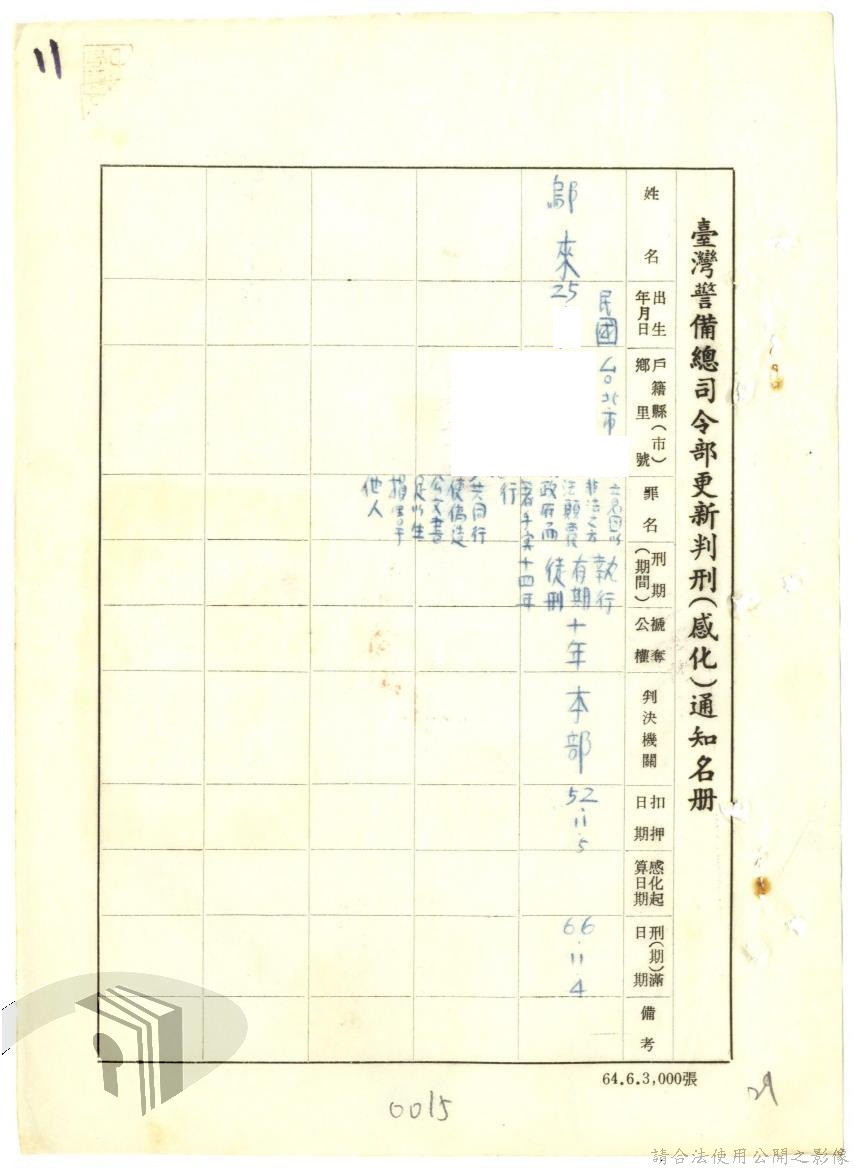 11
臺灣警備總司令部更新判刑(感化)通知名册
姓名
鄔來
出生年月日
民國
25
戶籍縣(市)鄉里號
台北市
罪名
意圖以
非法之方
法顛覆
政府而
著手實
行
共同行
使偽造
公文書
足以生
損害于
他人
刑期(期間)
執行
有期
徒刑
十四年
褫奪公權
十年
判決機關
本部
扣押日期
52.11.5
感化起算日期
刑(期)滿日期
66.11.4
備考
64.6.3,000張
0015
29
請合法使用公開之影像